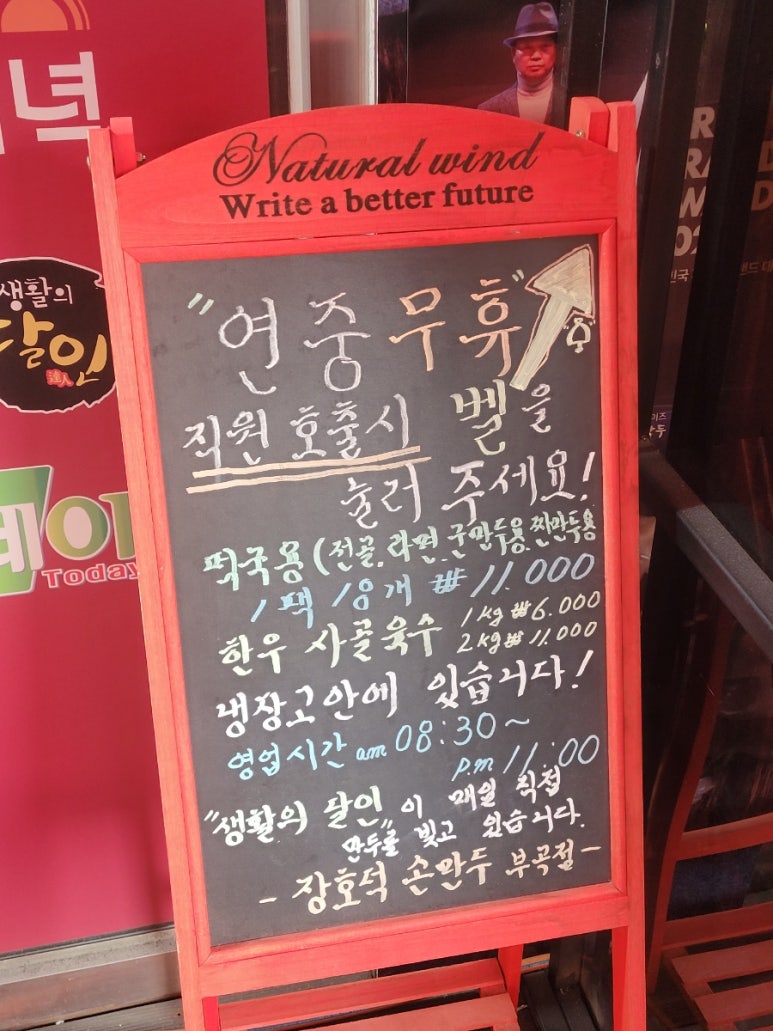 녁
생활의
달인
達人
Today
Natural wind
Write a better future
"연중무휴"
직원 호출시 벨을
눌러 주세요!
떡국용(전골.라면.군만두용.찐만두용
1팩 18개 ₩11.000
한우 사골육수 1kg ₩6.000
2kg ₩11.000
냉장고안에 있습니다!
영업시간 am 08:30~
p.m 11:00
"생활의 달인"이 매일 직접
만두를 빚고 있습니다.
- 장호덕 손만두 부곡점 -